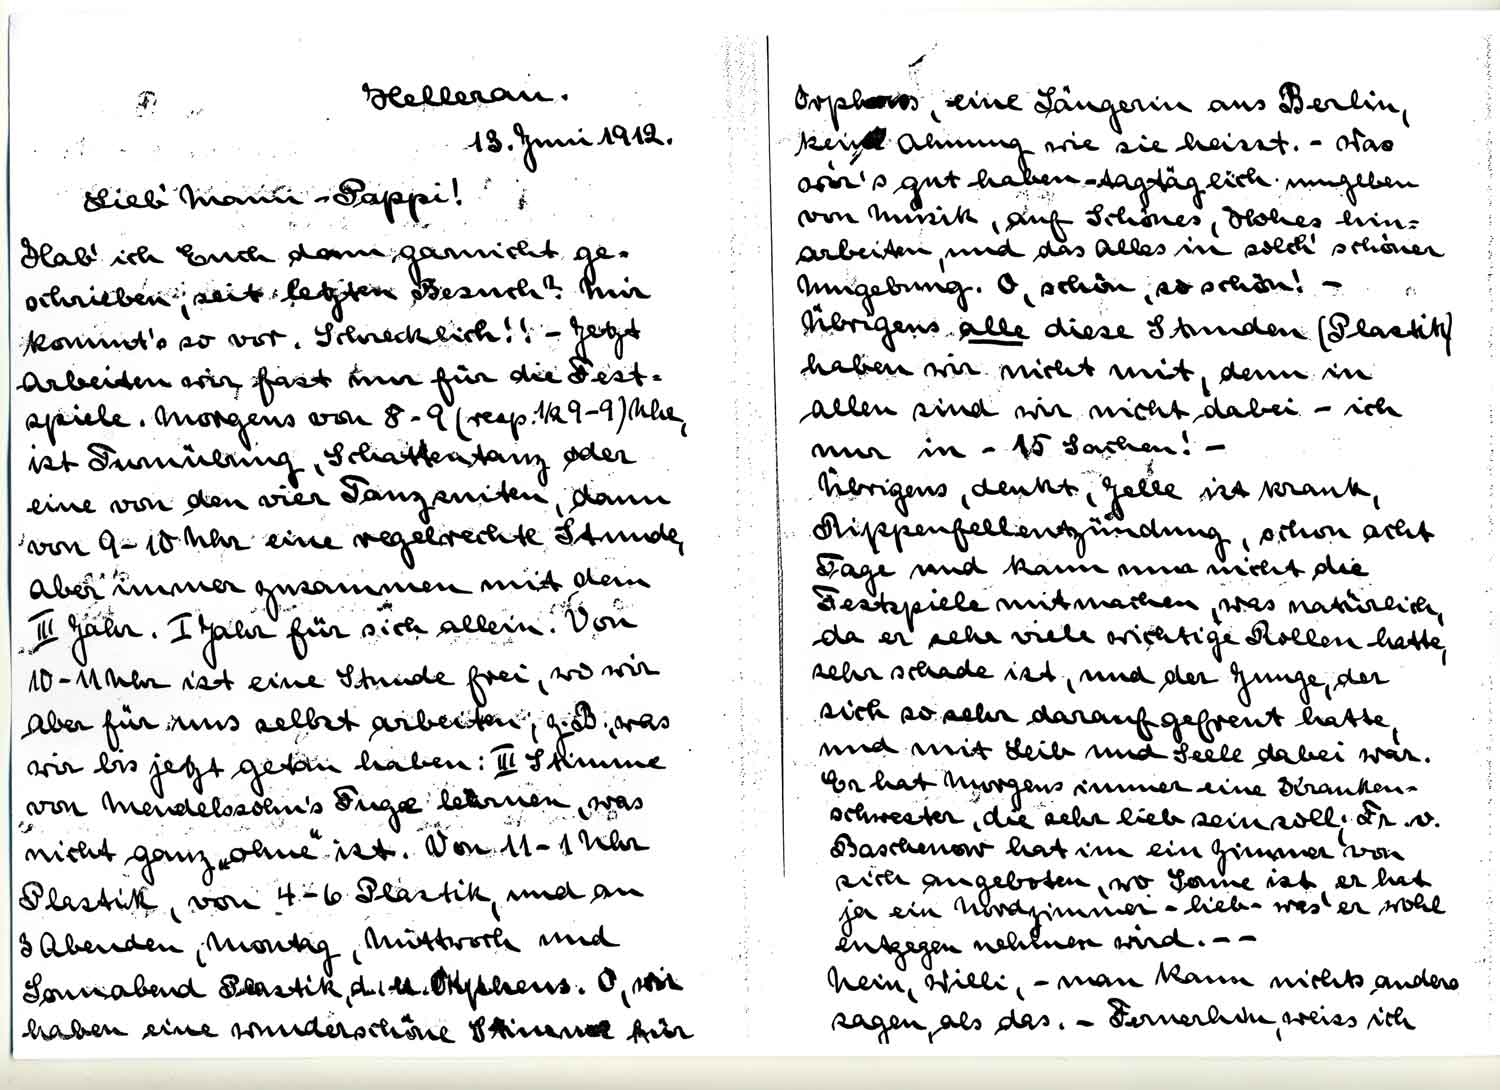 Hellerau.
13. Juni 1912.
Lieb' Mann - Pappi!
Hab' ich Euch denn garnicht ge-
schrieben, seit letzten Besuch? Mir
kommt's so vor. Schrecklich!! - Jetzt
arbeiten wir fast nur für die Fest-
spiele. Morgens von 8-9 (resp. 1/2 9-9) Uhr,
ist Turnübung, Schattentanz oder
eine von den vier Tanzsuiten, dann
von 9-10 Uhr eine regelrechte Stunde,
aber immer zusammen mit dem
III Jahr. I Jahr für sich allein. Von
10-11 Uhr ist eine Stunde frei, wo wir
aber für uns selbst arbeiten, z.B. was
wir bis jetzt getan haben: III Stimme
von Mendelssohn's Fuge lernen, was
nicht ganz „ohne" ist. Von 11-1 Uhr
Plastik, von 4-6 Plastik, und an
3 Abenden, Montag, Mittwoch und
Sonnabend Plastik, d.h. Orpheus. O, wir
haben eine wunderschöne Stimme für
Orpheus, eine Sängerin aus Berlin,
keine Ahnung wie sie heisst. - Was
wir's gut haben - tagtäglich umgeben
von Musik, auf Schönes, Hohes hin-
arbeiten, und das Alles in solch' schöner
Umgebung. O, schön, so schön! -
Übrigens alle diese Stunden (Plastik)
haben wir nicht mit, denn in
allen sind wir nicht dabei - ich
nur in - 15 Sachen! -
Übrigens, denkt, Jelle ist krank,
Rippenfellentzündung, schon acht
Tage und kann nun nicht die
Festspiele mitmachen, was natürlich,
da er sehr viele wichtige Rollen hatte,
sehr schade ist, und der Junge, der
sich so sehr darauf gefreut hatte,
und mit Leib und Seele dabei war.
Er hat Morgens immer eine Kranken-
schwester, die sehr lieb sein soll; Fr. v.
Baschenow hat im ein Zimmer von
sich angeboten, wo Sonne ist, er hat
ja ein Nordzimmer - lieb - was er wohl
entgegen nehmen wird. - -
Nein, Willi, - man kann nichts anders
sagen, als das. - Fernerhin, weiss ich